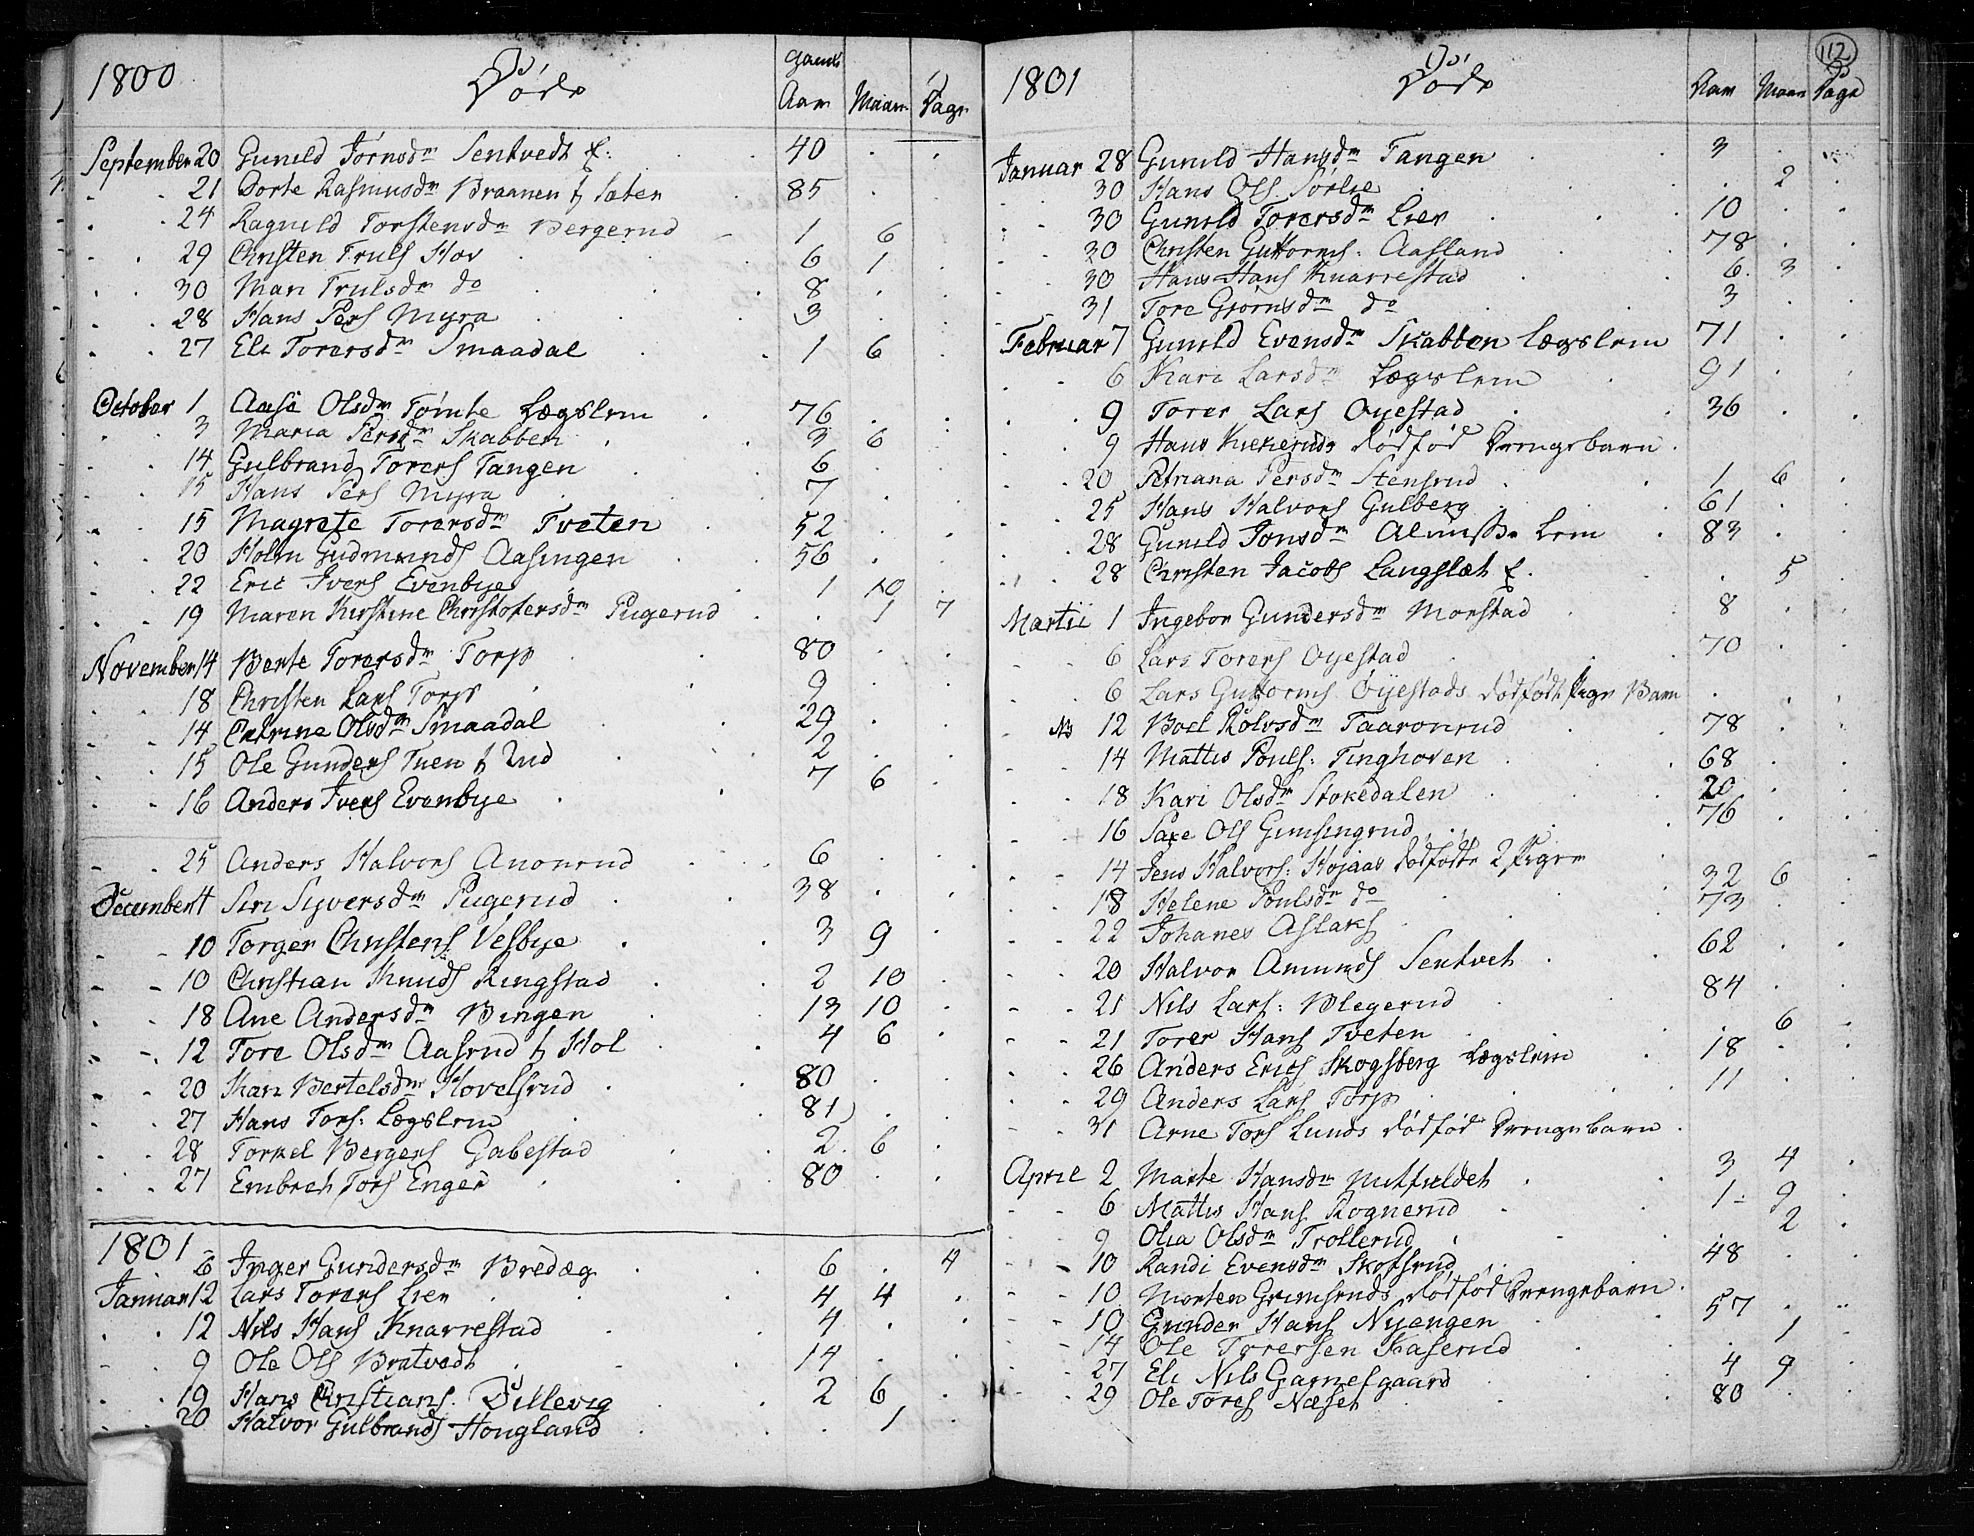 1800 Døde gamle Aar Maan. Dage
September 20 Gunild Jörnsdr Sentvedt f: 40
21 Dorte Rasmusdr Braanen f Sæter 85
24 Ragnild Torstensdr Bergerud 1 6
29 Christen Truls Hov 6 1
30 Mari Trulsdr do 8
28 Hans Pers Myra 3
27 Eli Torersdr Smaadal 1 6
October 1 Aase Olsdr Tömte Lægslem 76
3 Maria Persdr Skabben 3 6
14 Gulbrand Torers Tangen 6
15 Hans Pers Myra 7
15 Magrete Torersdr Tveten 52
20 Holm Gudmunds Aasingen 56
22 Eric Ivers Evenbye 1 10
19 Maren Kirstine Christofersdr Pugerud 1 7
November 14 Berte Torersdr Torp 80
18 Christen Lars Torp 9
14 Catrine Olsdr Smaadal 29
15 Ole Gunders Tuen f Rud 2
16 Anders Ivers Evenbye 7 6
25 Anders Halvors Anonrud 6
December 4 Siri Syversdr Pugerud 38
10 Torger Christens Vesbye 3 9
10 Christian Knuds Ringstad 2 10
18 Ane Andersdr Bingen 13 10
12 Tore Olsdr Aasrud f Hol 4 6
20 Kari Bertelsdr Hovelsrud 80
27 Hans Tors: Lægslem 81
28 Torkel Bergers Gabestad 2 6
27 Embret Tors Enger 80
1801
6 Inger Gundersdr Bredæg 6 4
Januar 12 Lars Torers Lier 4 4
12 Nils Hans Knarrestad 4
9 Ole Ols Bratvedt 14
19 Hans Christians: Dillevig 2 6
20 Halvor Gulbrands Hougland 1
112
1801 Døde Aar Maan Dage
Januar 28 Gunild Hansdr Tangen 3
30 Hans Ols Sørlie 2
30 Gunild Torersdr Lier 10
30 Christen Guttorms: Aasland 78
30 Hans Hans Knarrestad 6 3
31 Tore Gjörnsdr do 3
Februar 7 Gunild Evensdr Skabben Lægslem 71
6 Kari Larsdr Lægslem 91
9 Torer Lars Öyestad 36
9 Hans Kiekeruds dödföd Drengebarn
20 Petriana Persdr Stensrud 1 6
25 Hans Halvors Gulberg 61
28 Gunild Jonsdr Almisse lem 83
28 Christen Jacobs Langslæt f. 5
Martii 1 Ingebor Gundersdr Morstad 8
6 Lars Torers Oyestad 70
6 Lars Guttorms Öyestads dödfödt Pige Barn
NB 12 Boel Rolvsdr Taaronrud 78
14 Mattis Pouls: Tinghoven 68
18 Kari Olsdr Stokedalen 20
16 Saxe Ols Gimsingrud 76
14 Jens Halvors: Hojaas dödfödte 2 Piger
18 Helene Poulsdr do 32 6
22 Johanes Aslaks 73
20 Halvor Amunds Sentvet 62
21 Nils Lars: Blegerud 84
21 Torer Hans Tveten 6
26 Anders Erics Skogsberg Lægslem 18
29 Anders Lars Torp 11
31 Arne Tors Lunds dödföd Drengebarn
April 2 Marte Hansdr Mitfieldet 3 4
6 Mattis Hans Rognerud 1 9
9 Olia Olsdr Trollerud 2
10 Randi Evensdr Skofsrud 48
10 Morten Grimsruds dödföd Drengebarn
10 Gunder Hans Nyengen 57
14 Ole Torersen Kaserud 1
27 Eli Nils Garnesgaard 4 9
29 Ole Tores Næset 80